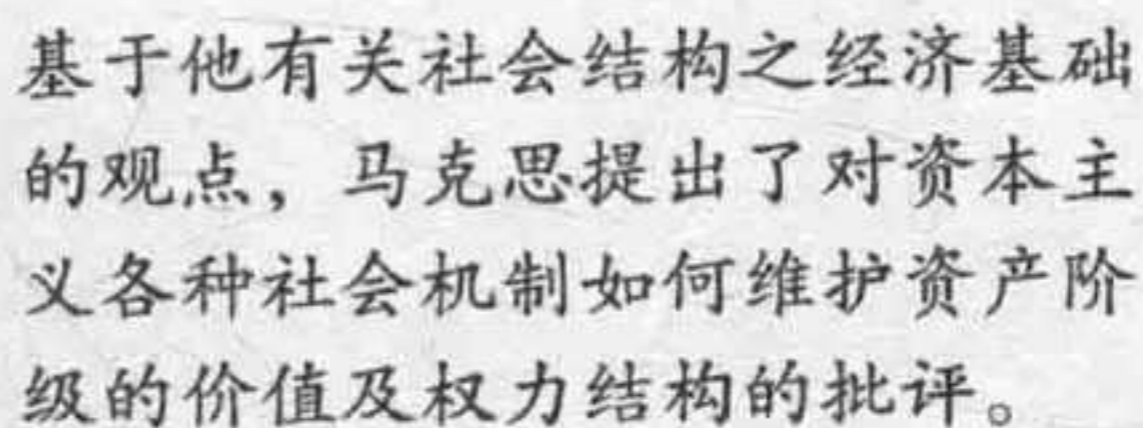 基于他有关社会结构之经济基础
的观点，马克思提出了对资本主
义各种社会机制如何维护资产阶
级的价值及权力结构的批评。